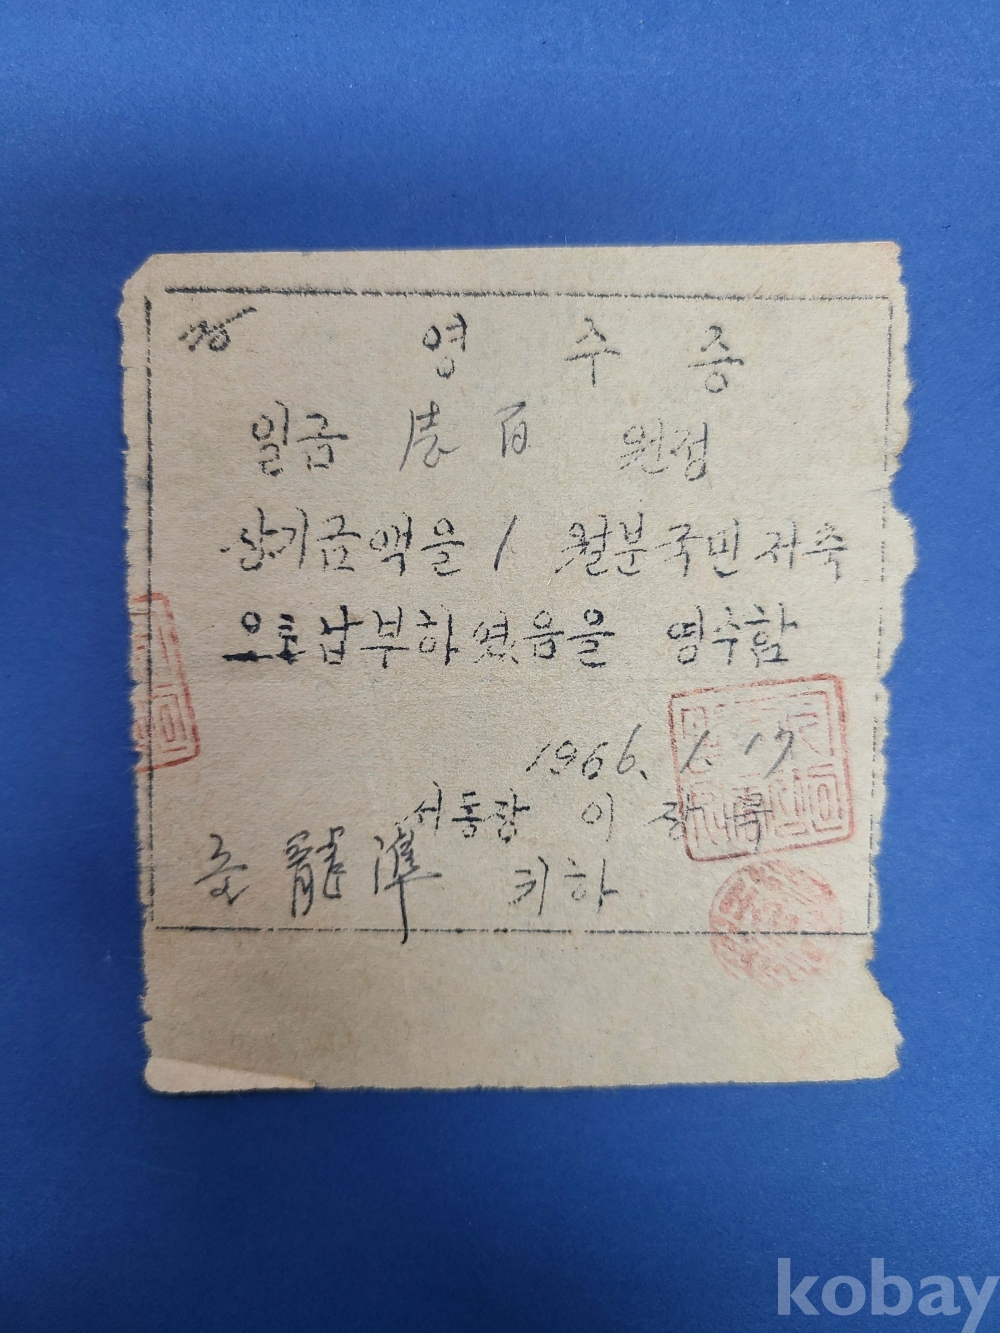 영 수 증
일금 壱百 원정
상기금액을 1 월분국민저축
으로납부하였음을 영수함
1966. 1. 17
서동장 이
龍準 귀하
kobay